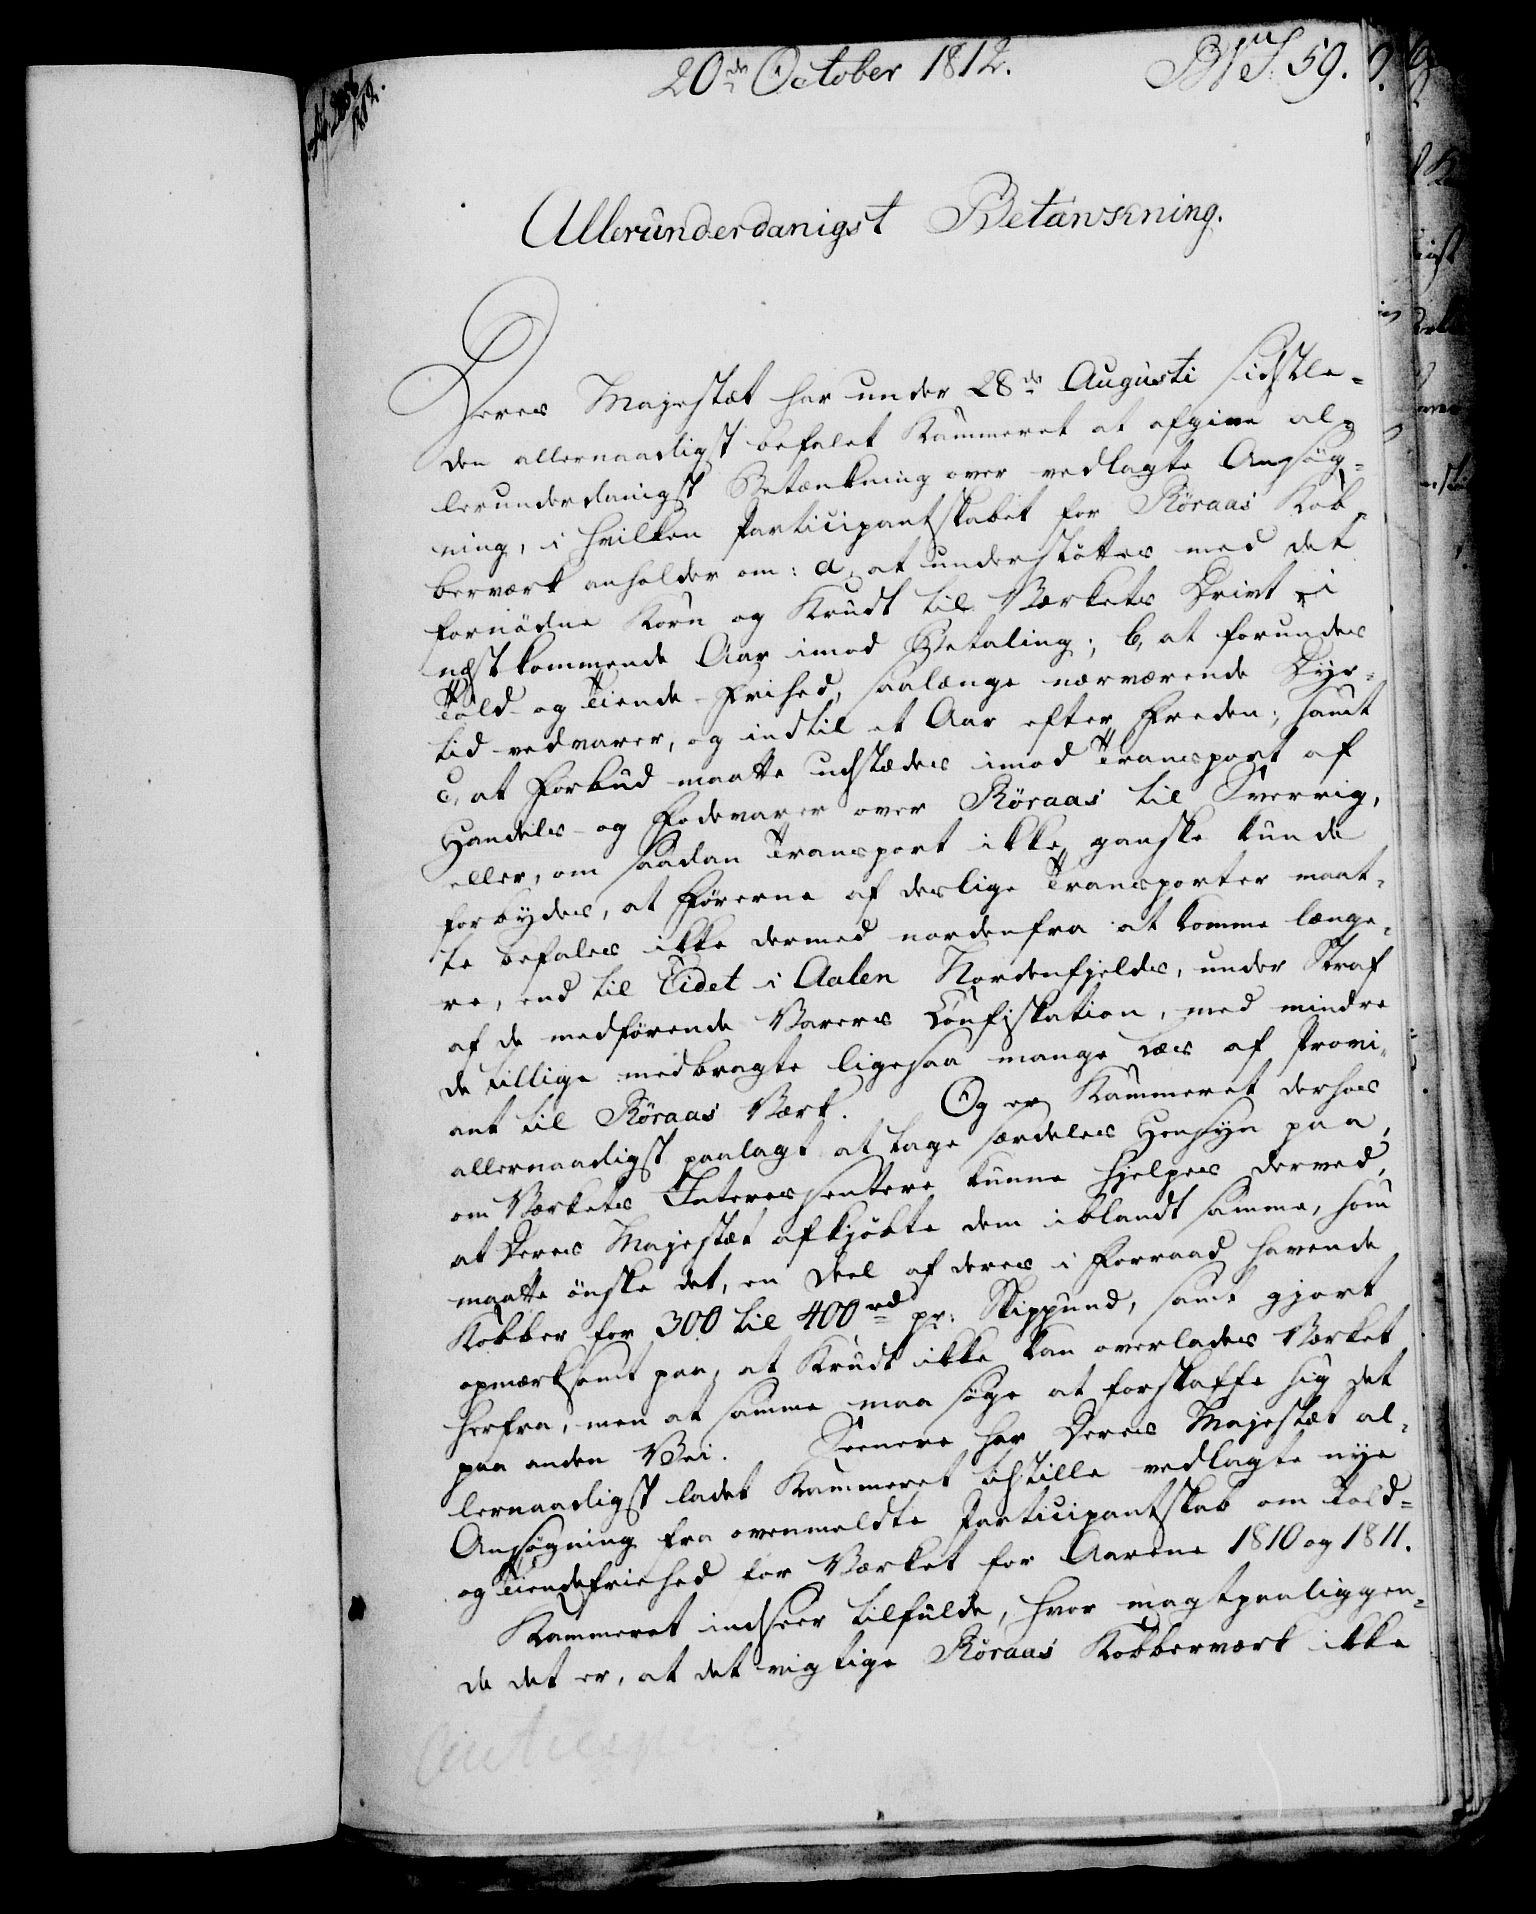 20de October 1812.
Allerunderdanigst Betænkning.
Deres Majestæt har under 28de Augusti sidstle-
den allernaadigst befalet Kammeret at afgive al-
lerunderdanigst Betænkning over vedlagte Ansøg-
ning, i hvilken Participantskabet for Röraas Kob-
berværk anholder om: a, at understøttes med det
fornødne Korn og Krudt til Værkets Drivt i
næstkommende Aar imod Betaling; b, at forundes
Told- og Tiende-Frihed, saalænge nærværende Dyr-
tid vedvarer, og indtil et Aar efter Freden; samt
c, at Forbud maatte udstædes imod Transport af
Handels- og Fødevarer over Röraas til Sverrig,
eller, om saadan Transport ikke ganske kunde
forbydes, at Førerne af deslige Transporter maat-
te befales ikke dermed nordenfra at komme længe-
re, end til Eidet i Aalen Nordenfjelds, under Straf
af de medførende Varers Confiskation, med mindre
de tillige medbragte ligesaa mange Læs af Provi-
ant til Röraas Værk. Og er Kammeret derhos
allernaadigst paalagt at tage særdeles Hensyn paa,
om Værkets Interessentere kunne hjelpes derved,
at Deres Majestæt afkjøbte dem iblandt samme, som
maatte ønske det, en Deel af deres i Forraad havende
Kobber for 300 til 400 rd pr: Skippund, samt gjort
opmærksomt paa, at Krudt ikke kan overlades Værket
herfra, men at samme maa søge at forskaffe sig det
paa anden Vei. Seenere har Deres Majestæt al-
lernaadigst ladet Kammeret tilstille vedlagte nye
Ansøgning fra ovenmeldte Participantskab om Told-
og Tiendefriehed for Værket for Aarene 1810 og 1811.
Kammeret indseer tilfulde, hvor magtpaaliggen-
de det er, at det vigtige Röraas Kobberværk ikke